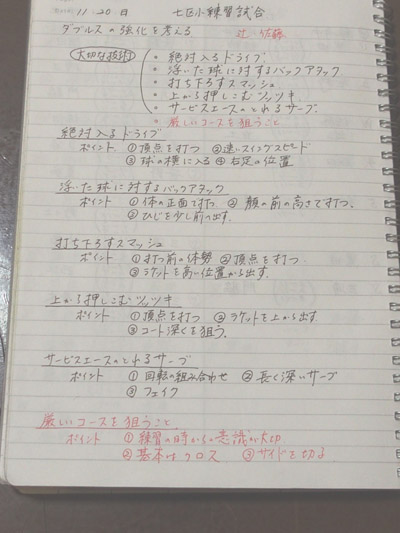 11.20 日 七区小練習試合
ダブルスの強化を考える 辻・佐藤
大切な技術
・絶対入るドライブ
・浮いた球に対するバックアタック
・打ち下ろすスマッシュ
・上から押しこむツッツキ
・サービスエースのとれるサーブ
・厳しいコースを狙うこと
絶対入るドライブ
ポイント ①頂点を打つ ②速いスイングスピード
③球の横に入る ④右足の位置
浮いた球に対するバックアタック
ポイント ①体の正面で打つ ②顔の前の高さで打つ。
②ひじを少し前へ出す。
打ち下ろすスマッシュ
ポイント ①打つ前の体勢 ②頂点を打つ
③ラケットを高い位置から出す。
上から押しこむツッツキ
ポイント ①頂点を打つ ②ラケットを上から出す
③コート深くを狙う。
サービスエースのとれるサーブ
ポイント ①回転の組み合わせ ②長く深いサーブ
③フェイク
厳しいコースを狙うこと
ポイント ①練習の時からの意識が大切
②基本はクロス ③サイドを切る